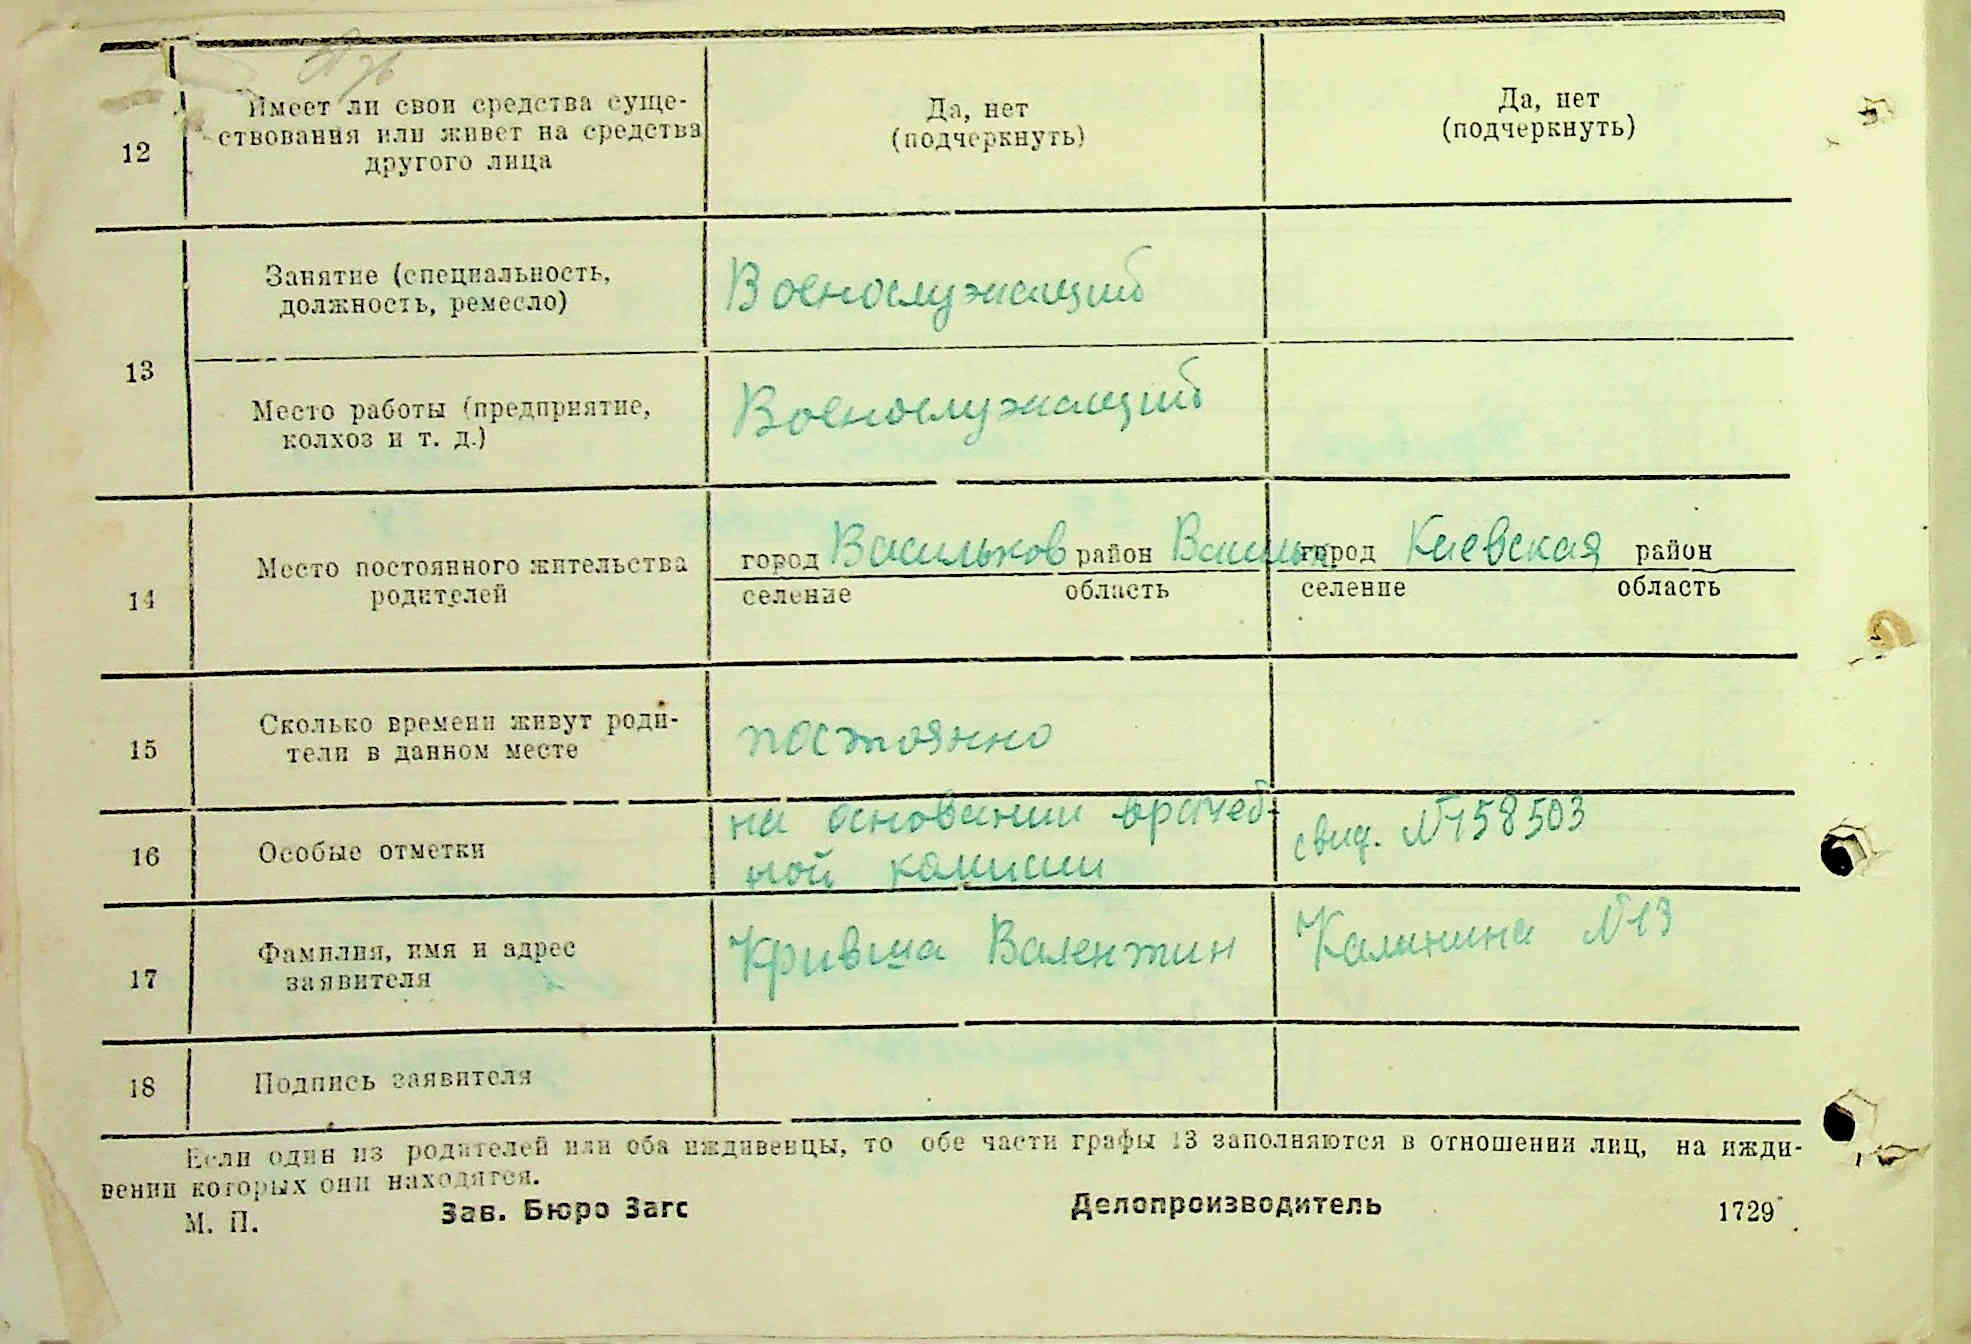 12
Имеет ли свои средства суще-
ствования или живет на средства
другого лица
Да, нет
(подчеркнуть)
Да, нет
(подчеркнуть)
13
Занятие (специальность,
должность, ремесло)
Военослужащий
Место работы (предприятие,
колхоз и т. д.)
Военослужащий
14
Место постоянного жительства
родителей
город Васильков район Васильк
селение область
город Киевская район
селение область
15
Сколько времени живут роди-
тели в данном месте
постоянно
16
Особые отметки
на основании врачеб-
ной комисии
свид. № 158503
17
Фамилия, имя и адрес
заявителя
Кривша Валентин
Калинина № 13
18
Подпись заявителя
Если один из родителей или оба иждивенцы, то обе части графы 13 заполняются в отношении лиц, на ижди-
вении которых они находятся.
М. П.
Зав. Бюро Загс
Делопроизводитель
1729